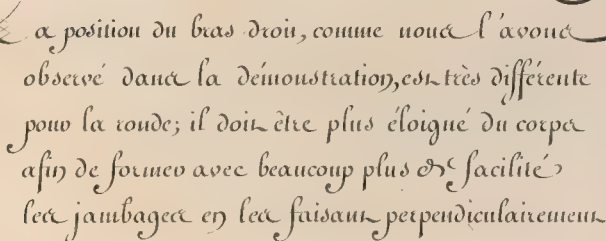 La position du bras droit, comme nous l'avons
observé dans la démonstration, est très différente
pour la ronde; il doit être plus éloigné du corps
afin de former avec beaucoup plus de facilité
les jambages en les faisant perpendiculairement